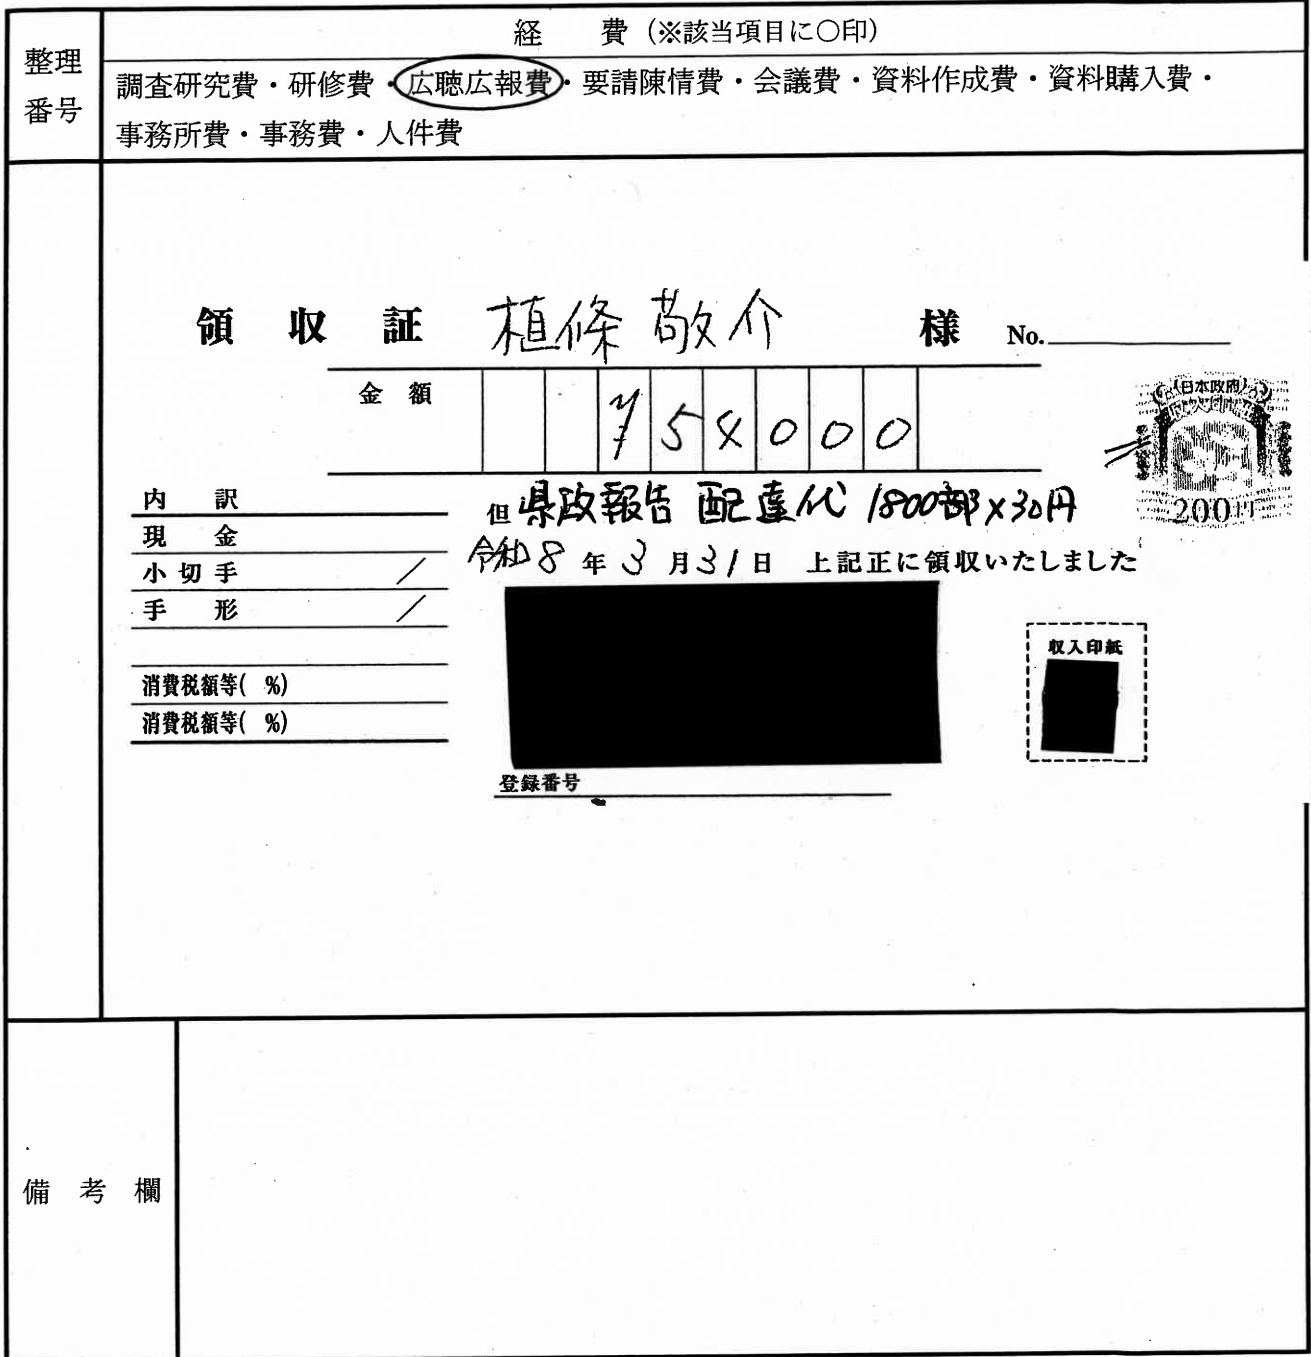 整理
番号
経　費（※該当項目に〇印）
調査研究費・研修費・広聴広報費・要請陳情費・会議費・資料作成費・資料購入費・
事務所費・事務費・人件費
領 収 証 植條 敬介 様 No.
金 額 ¥54000
日本政府
200円
内 訳
現 金
小切手
手 形
消費税額等( %)
消費税額等( %)
但 県政報告 配達代 1800部×30円
令和8年3月31日 上記正に領収いたしました
収入印紙
登録番号
備 考 欄